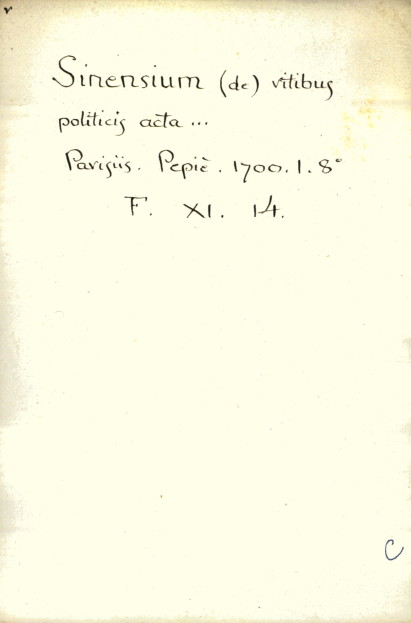 v
Sinensium (de) ritibus
politicis acta ...
Parisiis. Pepiè. 1700. 1. 8°
F. XI. 14.
C